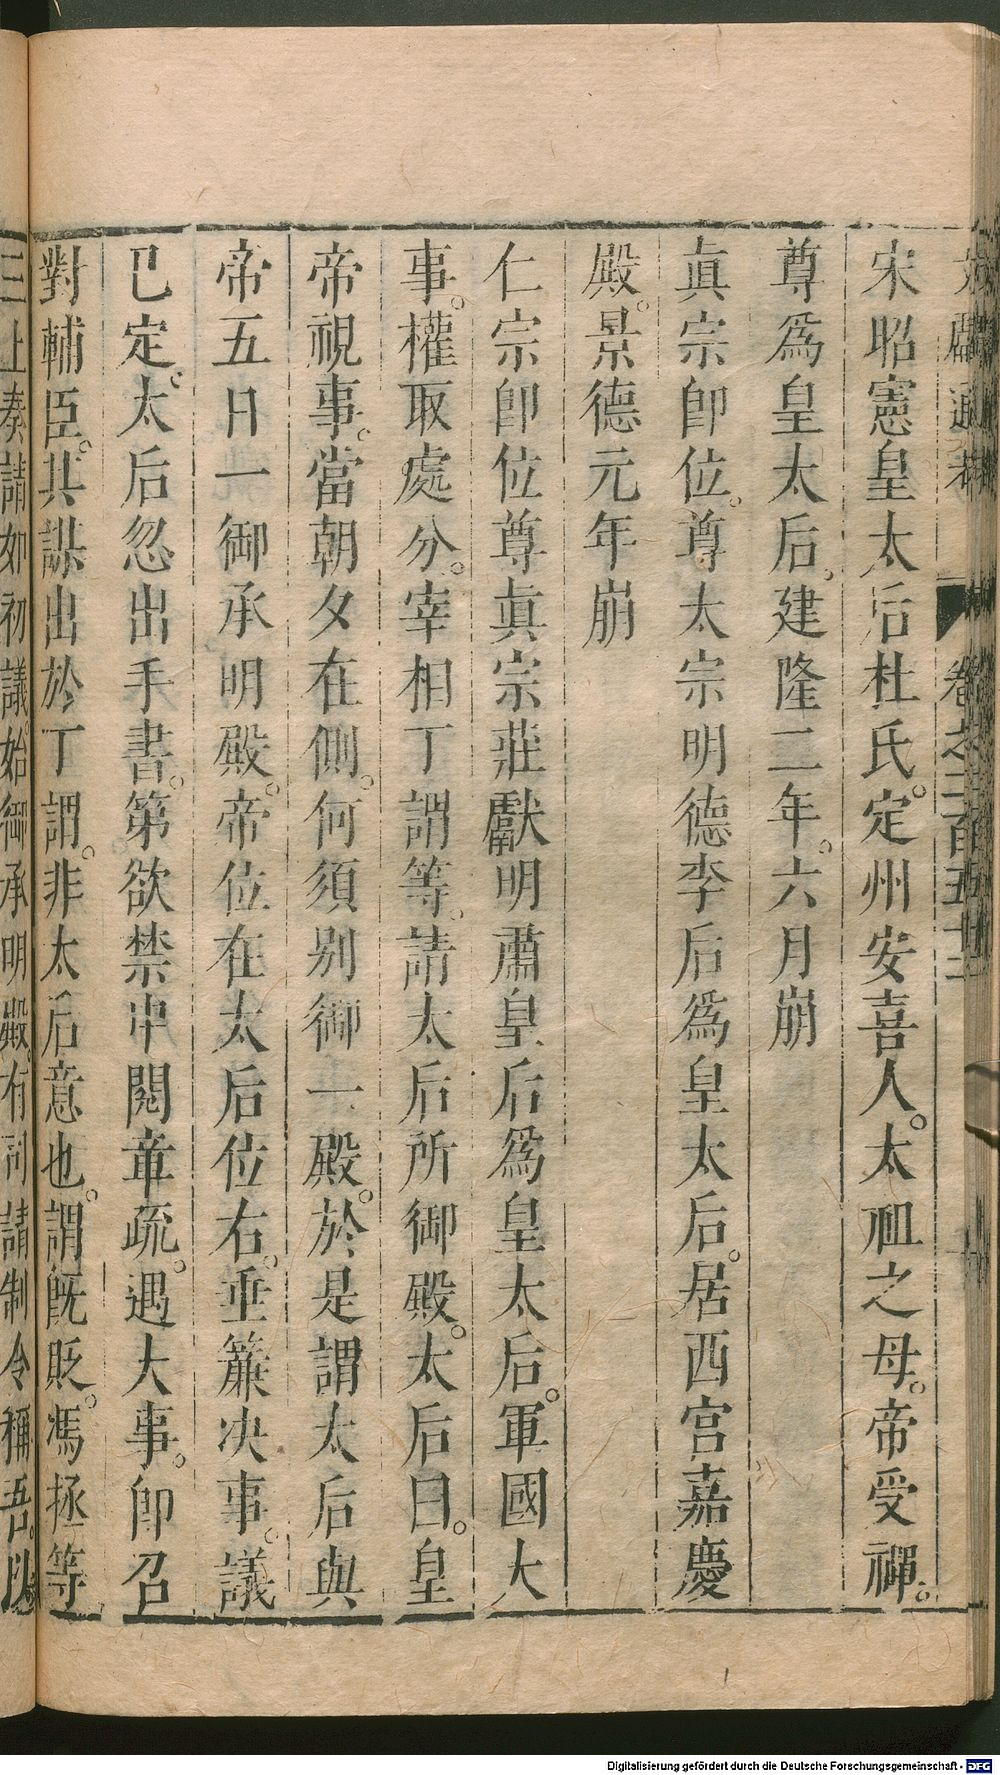 文獻通考 卷之二百五十二
宋昭憲皇太后杜氏。定州安喜人。太祖之母。帝受禪。
尊爲皇太后。建隆二年。六月崩
眞宗卽位。尊太宗明德李后爲皇太后。居西宮嘉慶
殿。景德元年崩
仁宗卽位尊眞宗莊獻明肅皇后爲皇太后。軍國大
事。權取處分。宰相丁謂等。請太后所御殿。太后曰。皇
帝視事。當朝夕在側。何須別御一殿。於是謂太后與
帝五日一御承明殿。帝位在太后位右。垂簾决事。議
已定。太后忽出手書。第欲禁中閱章疏。遇大事。卽召
對輔臣。其謀出於丁謂。非太后意也。謂旣貶。馮拯等
三上奏請如初議。始御承明殿。有司請制令稱吾。以
Digitalisierung gefördert durch die Deutsche Forschungsgemeinschaft - DFG